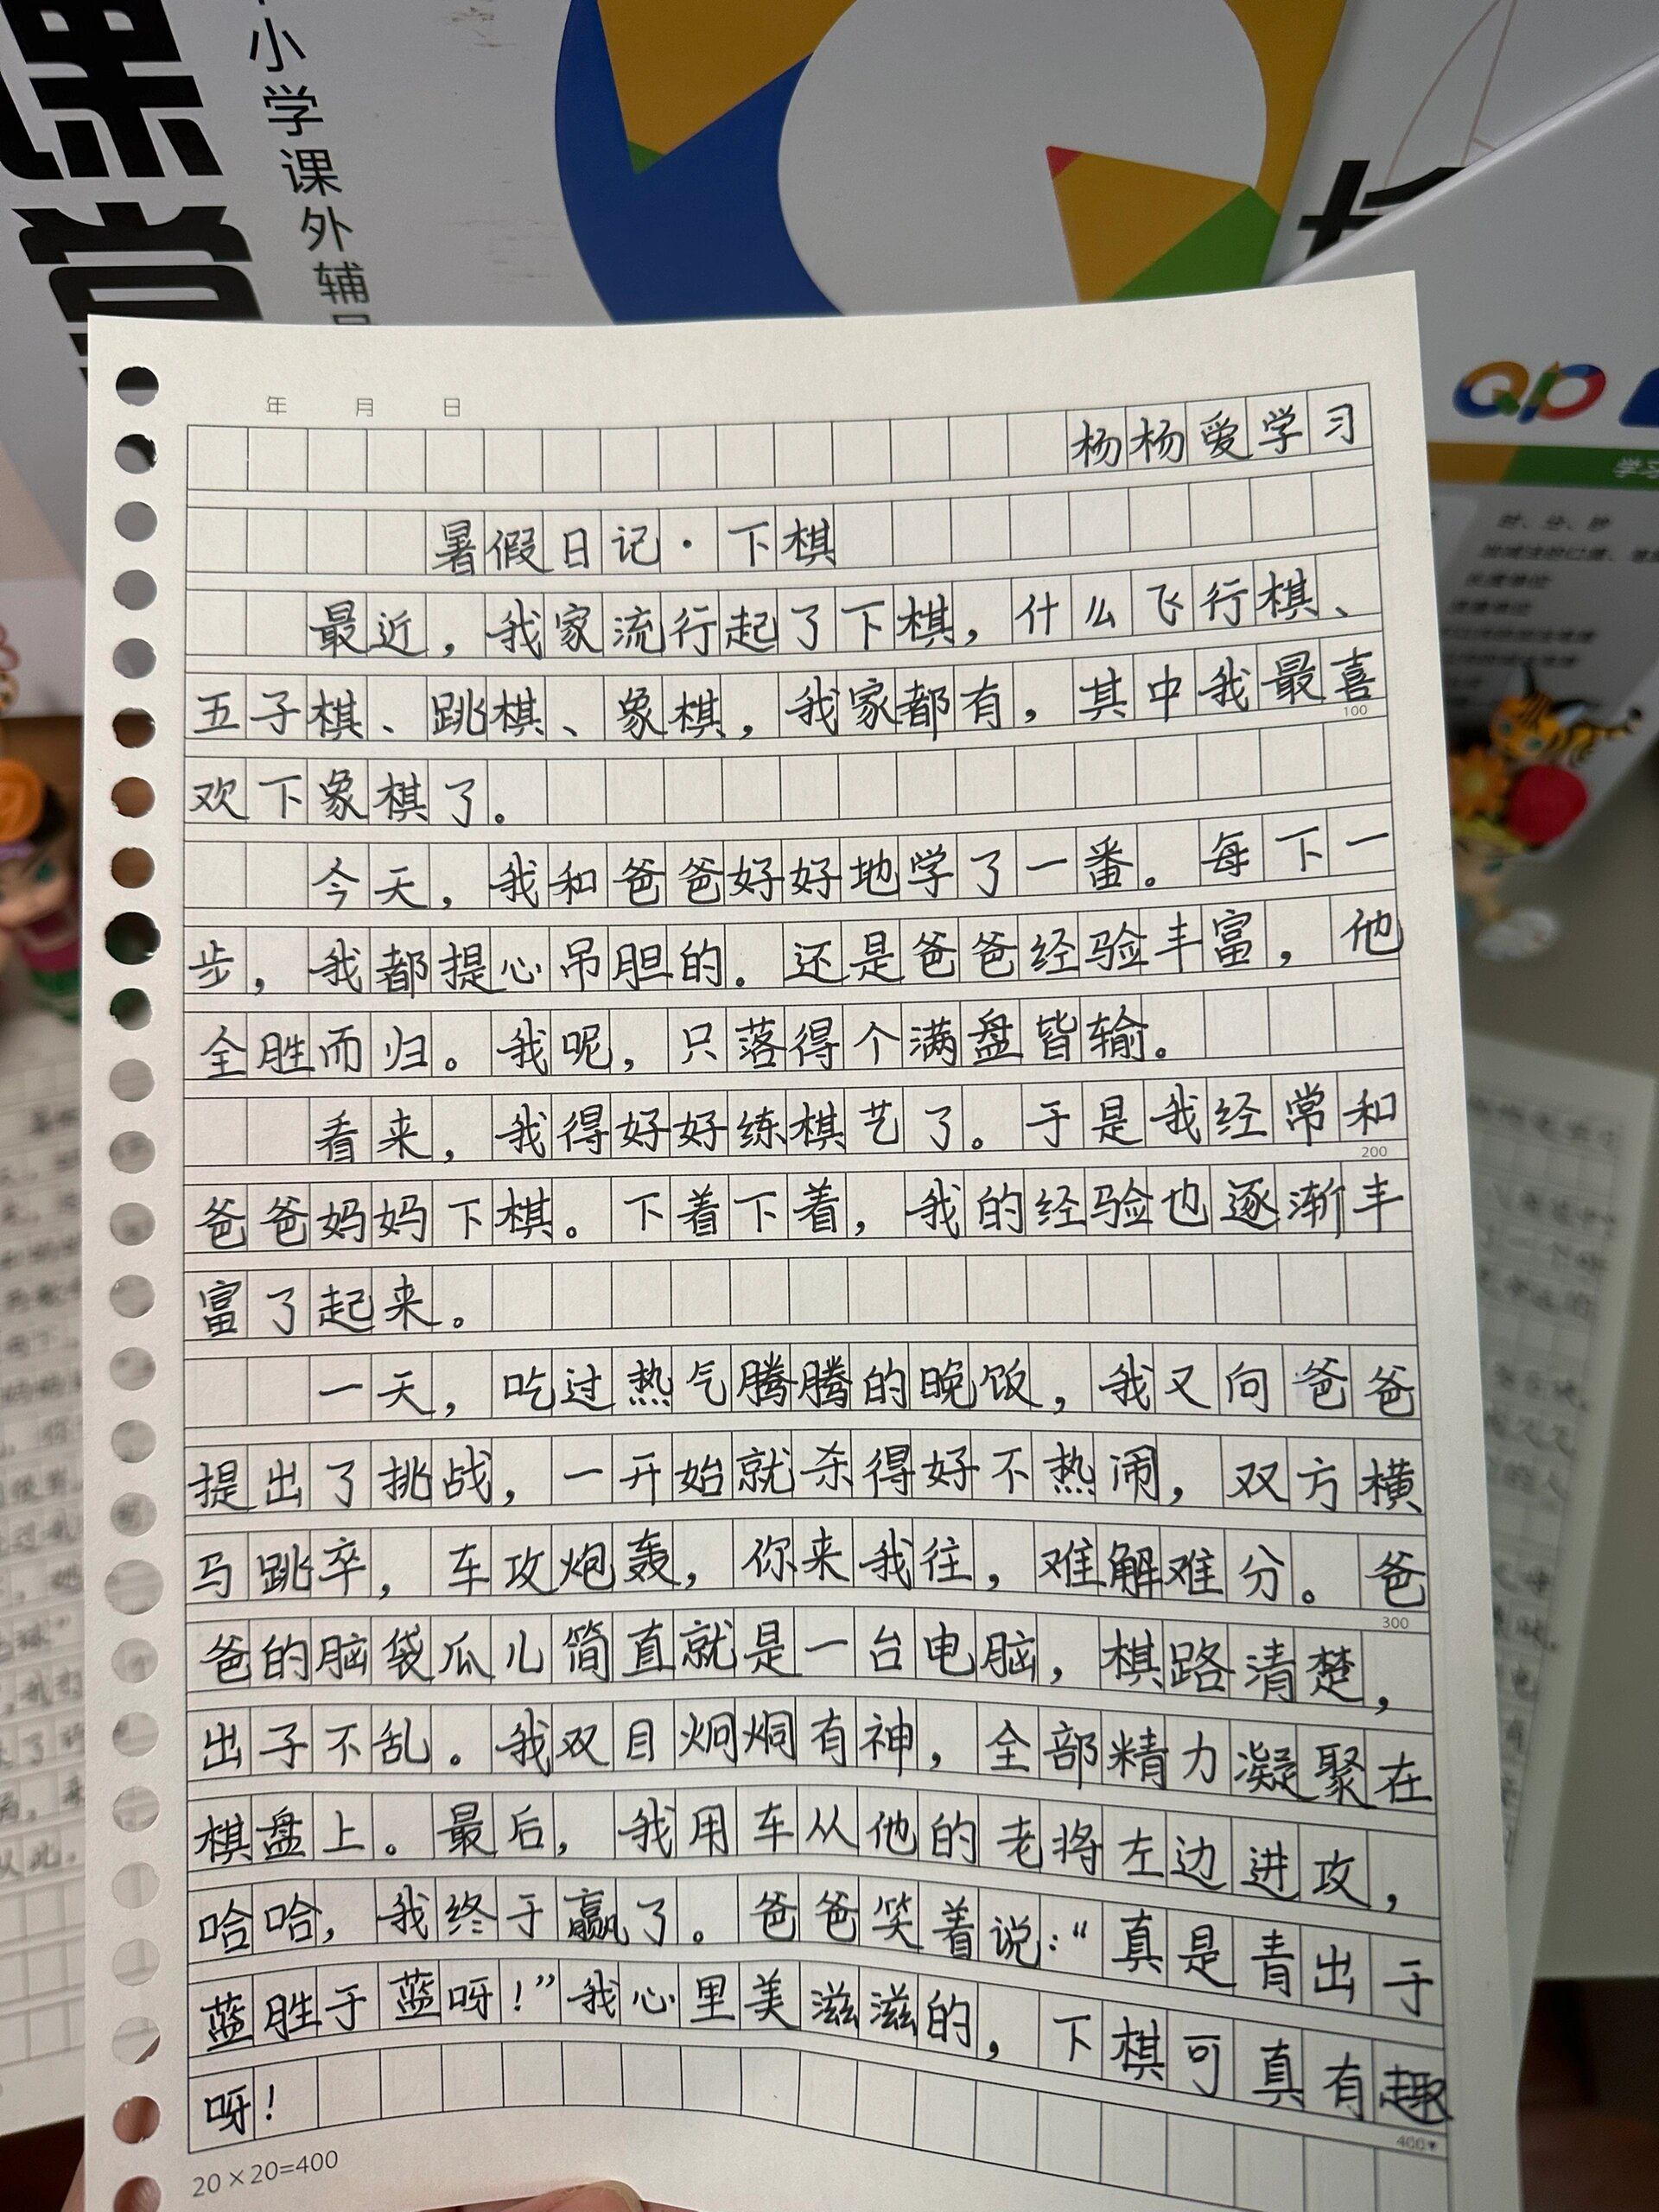 课堂
小学课外辅
年 月 日
杨杨爱学习
暑假日记·下棋
最近，我家流行起了下棋，什么飞行棋、
五子棋、跳棋、象棋，我家都有，其中我最喜
100
欢下象棋了。
今天，我和爸爸好好地学了一番。每下一
步，我都提心吊胆的。还是爸爸经验丰富，他
全胜而归。我呢，只落得个满盘皆输。
看来，我得好好练棋艺了。于是我经常和
200
爸爸妈妈下棋。下着下着，我的经验也逐渐丰
富了起来。
一天，吃过热气腾腾的晚饭，我又向爸爸
提出了挑战，一开始就杀得好不热闹，双方横
马跳卒，车攻炮轰，你来我往，难解难分。爸
300
爸的脑袋瓜儿简直就是一台电脑，棋路清楚，
出子不乱。我双目炯炯有神，全部精力凝聚在
棋盘上。最后，我用车从他的老将左边进攻，
哈哈，我终于赢了。爸爸笑着说：“真是青出于
蓝胜于蓝呀！”我心里美滋滋的，下棋可真有趣
呀！
400
20×20=400